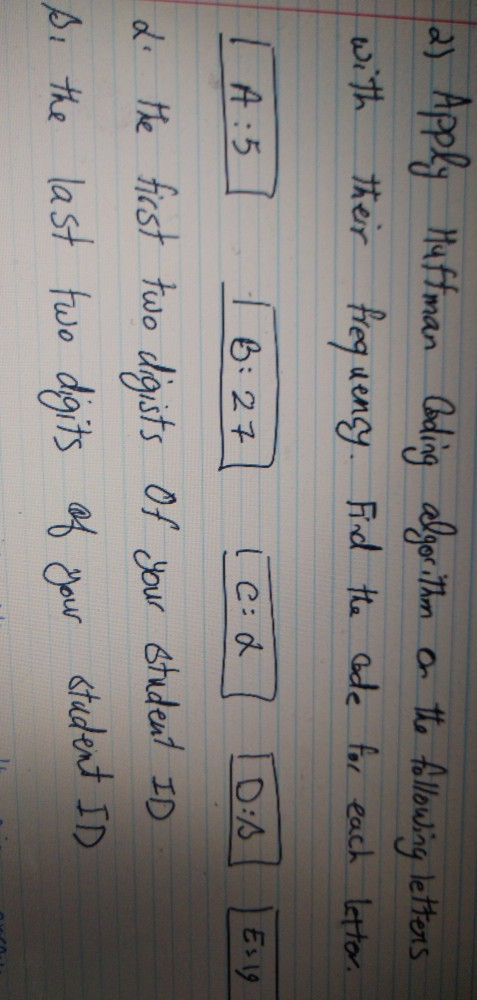 2) Apply Huffman Coding algorithm on the following letters
with their frequency. Find the code for each letter.
A:5 B:27 C:α D:β E:19
α: the first two digists of your student ID
β: the last two digits of your student ID